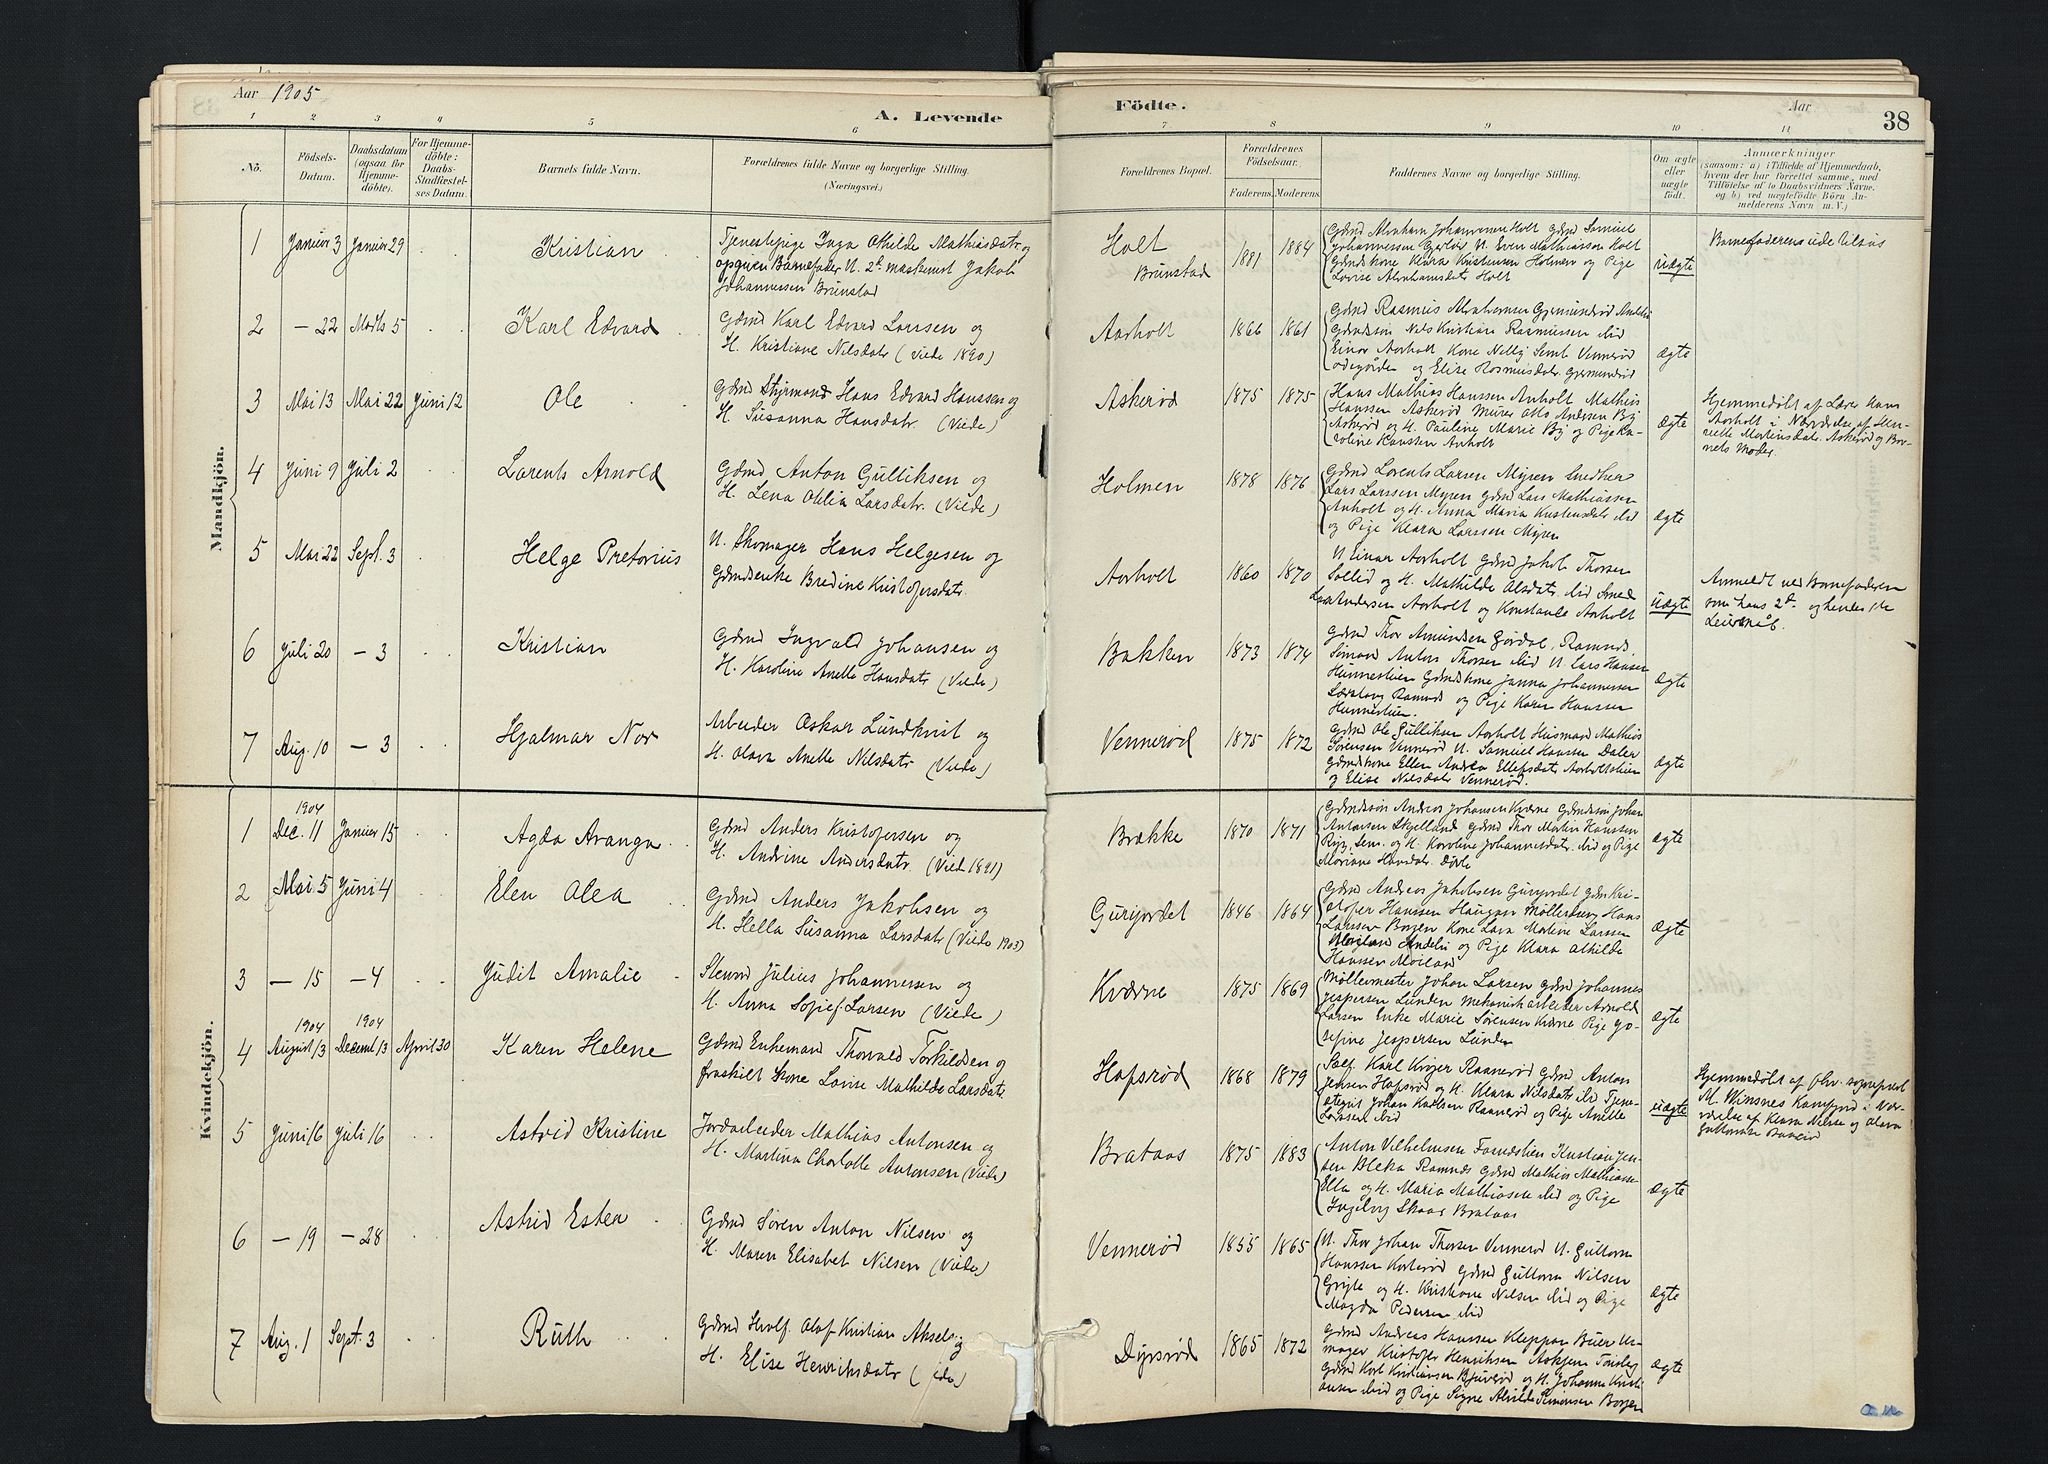 Aar 1905
A. Levende
Födte.
Aar
38
1 2 3 4 5 6 7 8 9 10 11
No.
Födsels-
Datum.
Daabsdatum
(ogsaa for
Hjemme-
döbte).
For Hjemme-
döbte:
Daabs-
Stadfæstel-
ses Datum.
Barnets fulde Navn.
Forældrenes fulde Navne og borgerlige Stilling.
(Næringsvei.)
Forældrenes Bopæl.
Forældrenes
Födselsaar.
Faderens. Moderens.
Faddernes Navne og borgerlige Stilling.
Om ægte
eller
uægte
födt.
Anmærkninger
(saasom: a) i Tilfælde af Hjemmedaab,
hvem der har forrettet samme, med
Tilföielse af to Daabsvidners Navne,
og b) ved uægtefödte Börn An-
melderens Navn m. V.)
Mandkjön.
1 Januar 3 Januar 29 Kristian
Tjenestepige Inga Othilde Mathiasdatr. og
opgiven Barnefader U. 2d maskinist Jakob
Johannessen Brunstad
Holt
Brunstad
1881 1884
Gdmd Abraham Johannessen Holt Gdmd Samuel
Johannessen Gjerløi U. Even Mathiassen Holt
Gdmdskone Klara Kristensen Holmen og Pige
Lovise Abrahamsdatr Holt
uægte
Barnefaderens ude tilsøs
2 — 22 Marts 5 Karl Edvard
Gdmd Karl Edvard Larsen og
H. Kristiane Nilsdatr (Viede 1890)
Aarholt 1866 1861
Gdmd Rasmus Abrahamsen Gjermundrød
Gdmdsøn Nils Kristian Rasmussen ibid
Einar Aarholt Kone Nelly Semb Vennerød
ødegården og Elise Rasmusdatr Gjermundrød
ægte
3 Mai 13 Mai 22 Juni 12 Ole
Gdmd Styrmand Hans Edvard Hanssen og
H. Susanna Hansdatr. (Viede)
Askerød 1875 1875
Hans Mathias Hanssen Anholt Mathias
Hanssen Askerød Murer Otto Andersen By
Askerød og H. Pauline Marie By og Pige Ka-
roline Hanssen Anholt
ægte
Hjemmedøbt af Lærer
Aarholt i Nærværelse af Hen-
riette Martinsdatr. Askerød og Bar-
nets Moder.
4 Juni 9 Juli 2 Larents Arnold
Gdmd Anton Gulliksen og
H. Lena Othlia Larsdatr. (Viede)
Holmen 1878 1876
Gdmd Lorents Larsen Myren Snedker
Lars Larssen Myren Gdmd Lars Mathiassen
Anholt og H. Anna Maria Kristensdatr ibid
og Pige Klara Larssen Myren
ægte
5 Mai 22 Sept. 3 Helge Pretorius
U. Skomager Hans Helgesen og
Gdmdsenke Bredine Kristofersdatr.
Aarholt 1860 1870
U. Einar Aarholt Gdmd Jakob Thorsen
Sollid og H. Mathilde Olsdatr. ibid Smed
Lars Andersen Aarholt og Konstance Aarholt
uægte
Anmeldt ved Barnefaderen
som hans 2d. og hendes 1te
Leiersmål.
6 Juli 20 — 3 Kristian
Gdmd Ingvald Johansen og
H. Karoline Anette Hansdatr (Viede)
Bakken 1873 1874
Gdmd Thor Amundsen Gjørdal, Ramnæs,
Sømand Anton Thorsen ibid U. Lars Hansen
Hunnestien Gdmdskone Janna Johannessen
Ramnæs og Pige Karen Hanssen
Hunnestien.
ægte
7 Aug. 10 — 3 Hjalmar Nor
Arbeider Oskar Lundkvist og
H. Olava Anette Nilsdatr (Viede)
Vennerød 1875 1872
Gdmd Ole Gulliksen Aarholt Husmand Mathias
Sørensen Vennerød U. Samuel Hanssen Daler
Gdmdskone Ellen Andrea Ellefsdatr Aarholtstien
og Elise Nilsdatr Vennerød.
ægte
Kvindekjön.
1904
1 Dec. 11 Januar 15 Agda Aranga
Gdmd Anders Kristofersen og
H. Andrine Andersdatr. (Vied 1891)
Brække 1870 1871
Gdmdssøn Andreas Johansen Kværne Gdmdssøn Johan
Antonsen Skjelland Gdmd Thor Martin Hanssen
Ryg, Sem. og H. Karoline Johannesdatr. ibid og Pige
Mariane Hansdatr.
ægte
2 Mai 5 Juni 4 Elen Olea
Gdmd Anders Jakobsen og
H. Hella Susanna Larsdatr (Viede 1903)
Gurijordet 1846 1864
Gdmd Andreas Jakobsen Gurijordet Gdmd Kri-
stofer Hanssen Haugan Møllersvend Hans
Larssen Borgen Kone Lava Martine Larssen
og Pige Klara Othilde
Hanssen Moiland
ægte
3 — 15 — 4 Judit Amalie
Stensmd Julius Johannessen og
H. Anna Sofie f. Larsen (Viede)
Kværne 1875 1869
Møllermester Johan Larsen Gdmd Johannes
Jespersen Lunden mekanisk arbeider Arnold
Larsen Enke Marie Sørensen Kværne Pige Jo-
sefine Jespersen Lunden
ægte
1904 1904
4 August 13 Decemb 13 April 30 Karen Helene
Gdmd Enkemand Thorvald Torkildsen og
fraskilt Kone Lovise Mathilde Larsdatr
Hafsrød 1868 1879
Self. Karl Krøger Raanerød Gdmd Anton
Jensen Hafsrød og H. Klara Nilsdatr ibid Tjene-
stegut Johan Karlsen Raanerød og Pige Anette
Larssen ibid
uægte
Hjemmedøbt af Ohv. sogneprest
M. Winsnes Ramfjord i Nær-
værelse af Klara Nilsen og Olava
Guttormsen
5 Juni 16 Juli 16 Astrid Kristine
Jordarbeider Mathias Antonsen og
H. Martina Charlotte Antonsen (Viede)
Brataas 1875 1883
Anton Vilhelmsen Kristian Jen-
sen Bleka Ramnæs Gdmd Mathias Mathiassen
Ella og H. Maria Mathiassen ibid og Pige
Ingeborg Skaar Brataas
ægte
6 — 19 — 28 Astrid Ester
Gdmd Søren Anton Nilsen og
H. Maren Elisabet Nilsen (Viede)
Vennerød 1855 1865
U. Thor Johan Thorsen Vennerød U. Guttorm
Hanssen Korterød Gdmd Guttorm Nilsen
Grigte og H. Kristiane Nilsen ibid og Pige
Magda Pedersen ibid
ægte
7 Aug. 1 Sept. 3 Ruth
Gdmd Hvalf. Olaf Kristian Akselsen og
H. Elise Henriksdatr (Viede)
Dyrsrød 1865 1872
Gdmd Andreas Hanssen Kleppan Buer Ur-
mager Kristofer Henriksen Askjem Tønsberg
Gdmd Karl Kristiansen Bjuerød og H. Johanne Kristi-
ansen ibid og Pige Signe Alvilde Simonsen Borgen
ægte